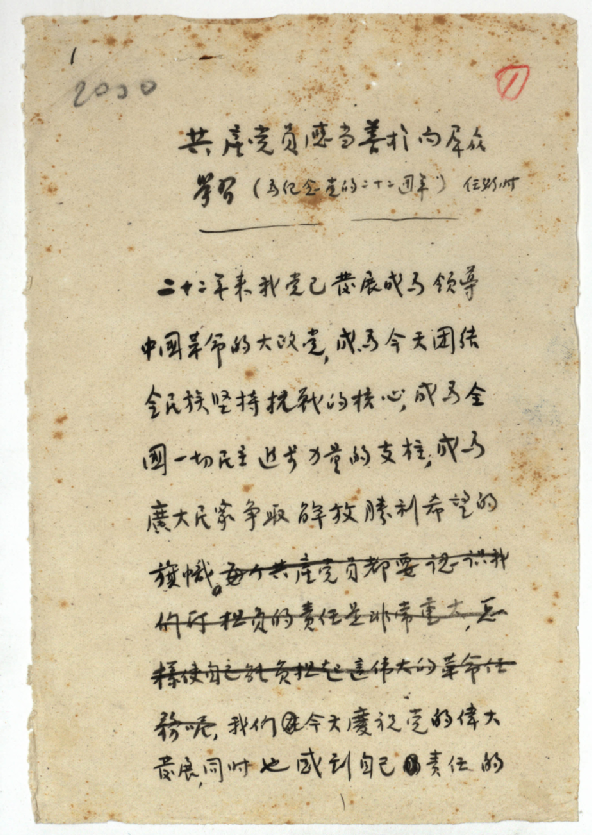 2030
1
共產党員應当善於向群众
學習（为纪念党的二十二周年）任弼时
二十二年来我党已發展成为领导
中國革命的大政党，成为今天团结
全民族坚持抗战的核心，成为全
國一切民主进步力量的支柱，成为
廣大民眾争取解放勝利希望的
旗幟。每个共產党員都要认识我
们所担负的责任是非常重大，怎
樣使自己能负担起这伟大的革命任
務呢，我们在今天慶祝党的偉大
發展，同时也感到自己责任的